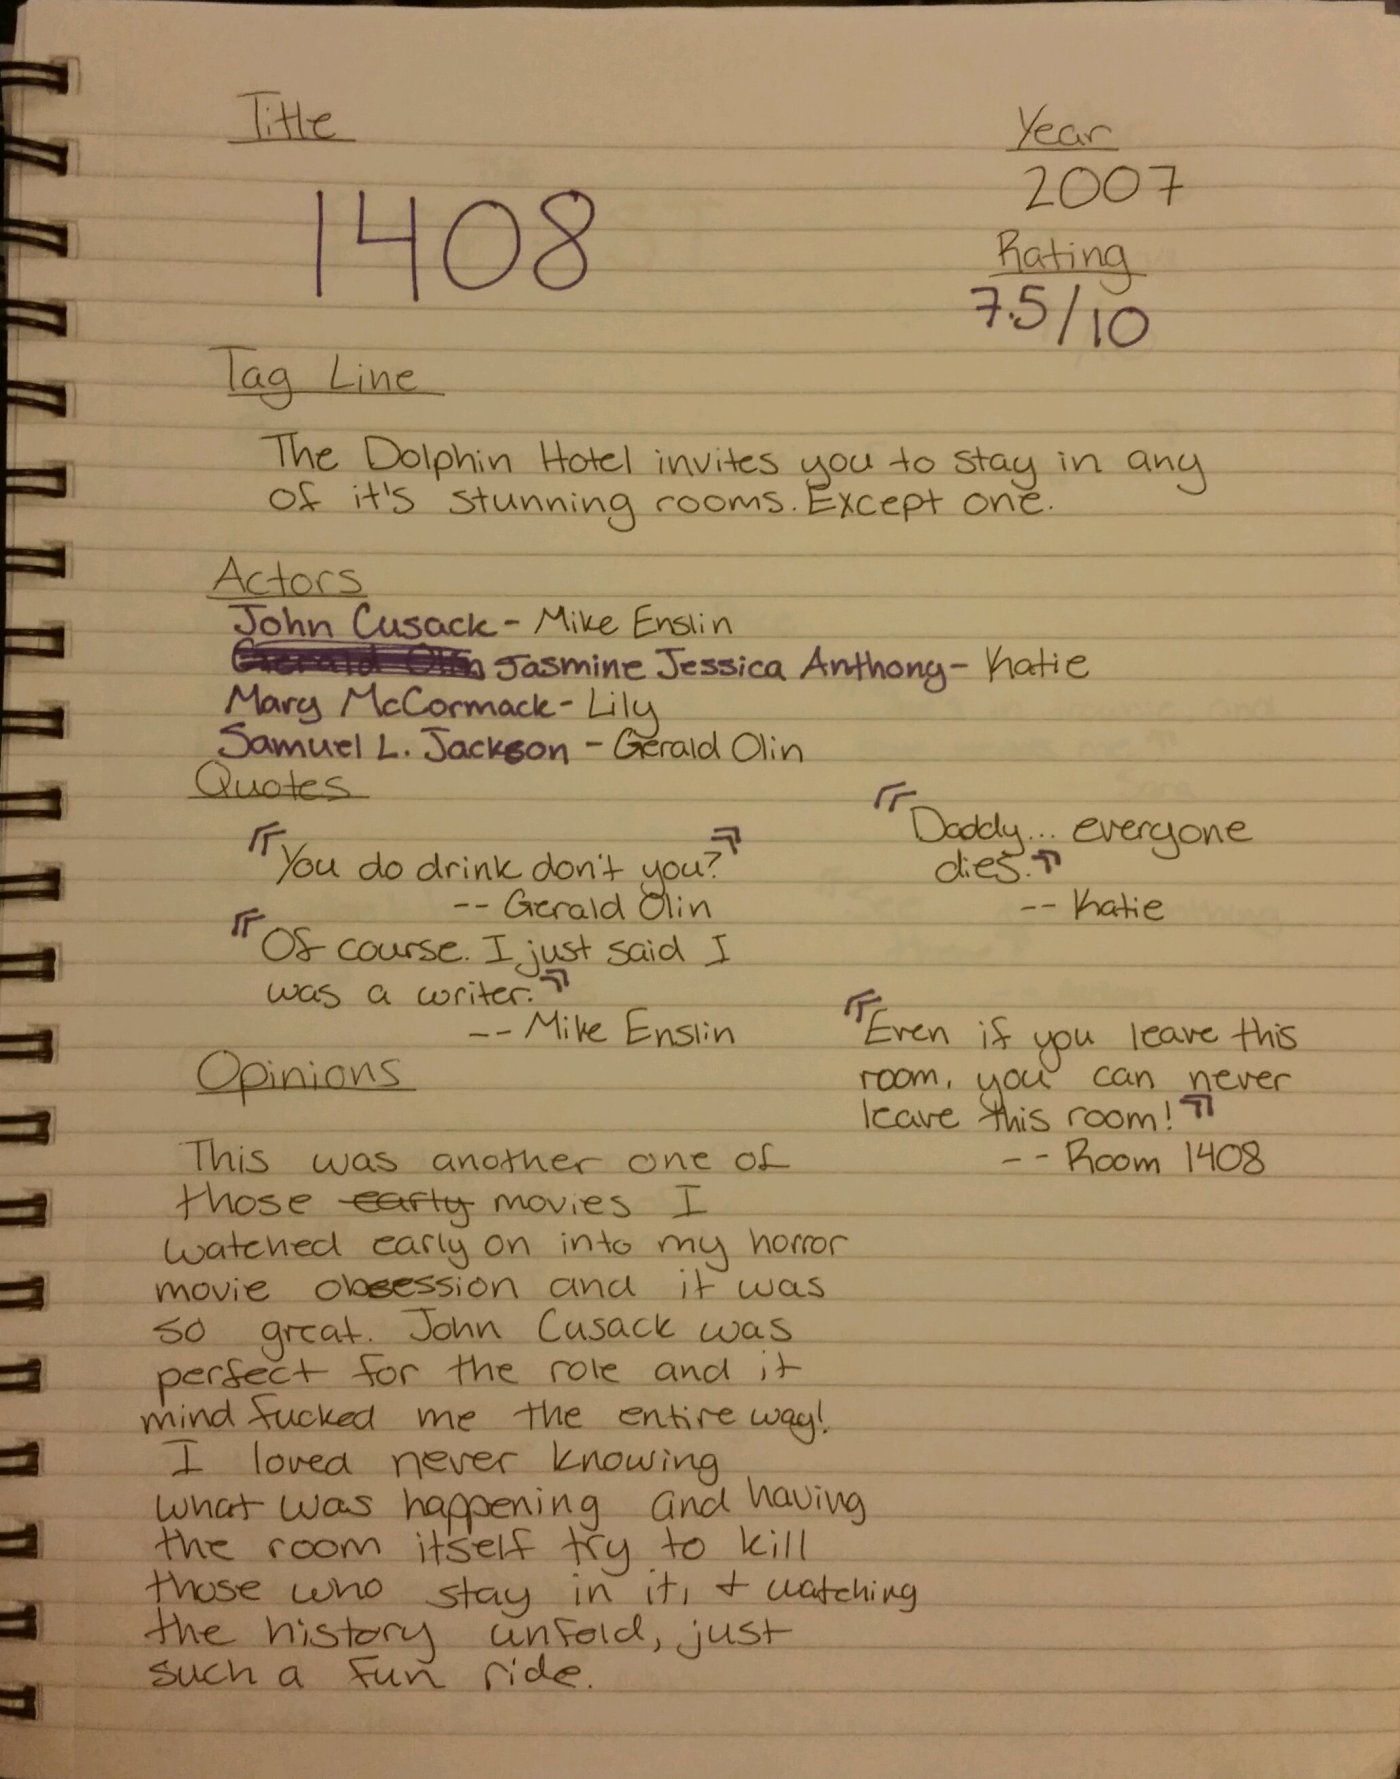 Title
1408
Year
2007
Rating
7.5/10
Tag Line
The Dolphin Hotel invites you to stay in any
of it's stunning rooms. Except one.
Actors
John Cusack - Mike Enslin
Gerald Olin Jasmine Jessica Anthony - Katie
Mary McCormack - Lily
Samuel L. Jackson - Gerald Olin
Quotes
"You do drink don't you?"
-- Gerald Olin
"Of course. I just said I
was a writer."
-- Mike Enslin
"Daddy... everyone
dies."
-- Katie
"Even if you leave this
room, you can never
leave this room!"
-- Room 1408
Opinions
This was another one of
those early movies I
watched early on into my horror
movie obsession and it was
so great. John Cusack was
perfect for the role and it
mind fucked me the entire way!
I loved never knowing
what was happening and having
the room itself try to kill
those who stay in it, + watching
the history unfold, just
such a fun ride.